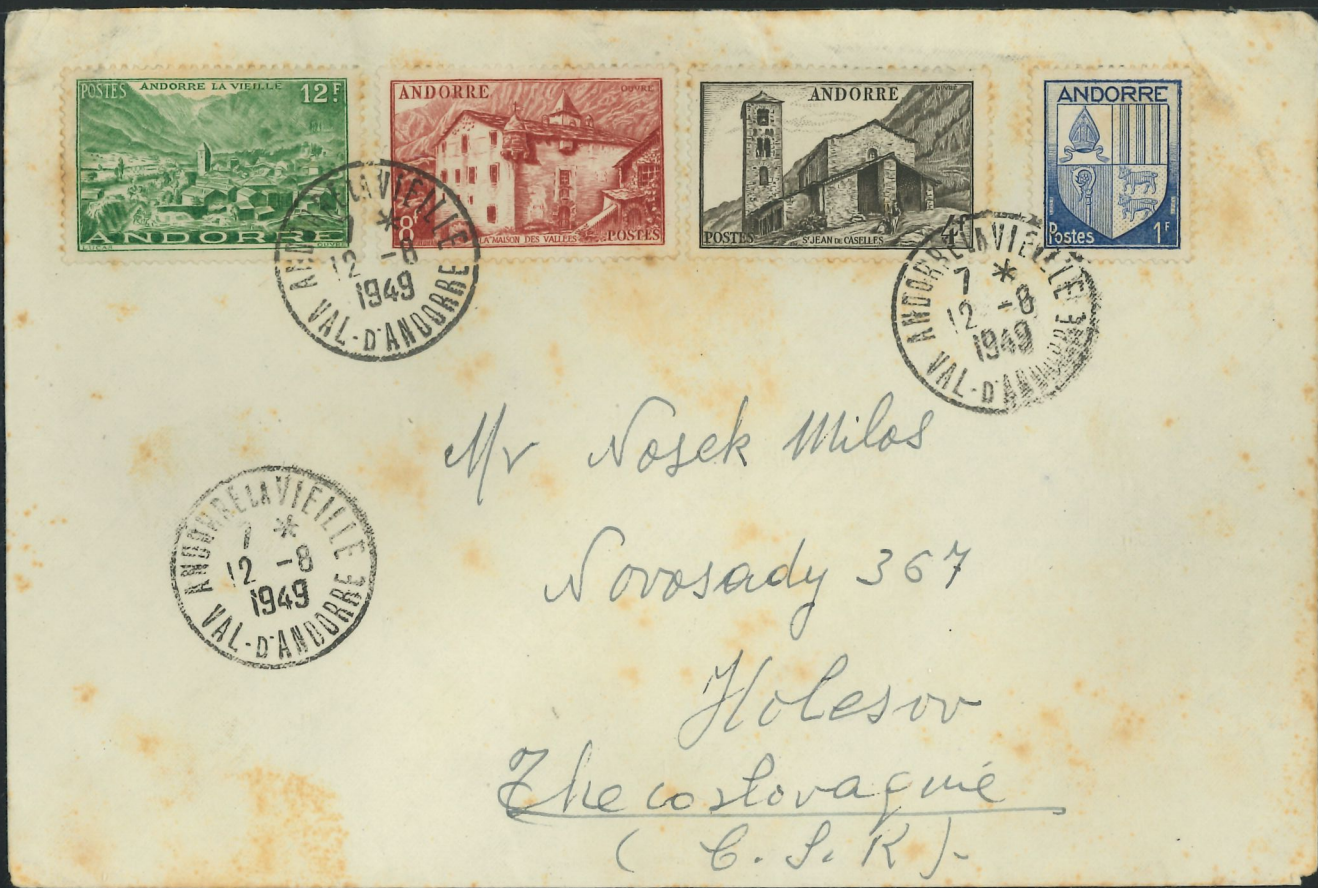 POSTES ANDORRE LA VIEILLE 12F
ANDORRE
LUCAS
ANDORRE
8F LA MAISON DES VALLÉES POSTES
ANDORRE
POSTES St JEAN DE CASELLES 4F
ANDORRE
Postes 1F
ANDORRE LA VIEILLE
7 *
12 -8
1949
VAL-D'ANDORRE
ANDORRE LA VIEILLE
7 *
12 -8
1949
VAL-D'ANDORRE
Mr Nosek Milos
ANDORRE LA VIEILLE
7 *
12 -8
1949
VAL-D'ANDORRE
Novosady 367
Holesov
Thecoslovaquie
(C.S.R).